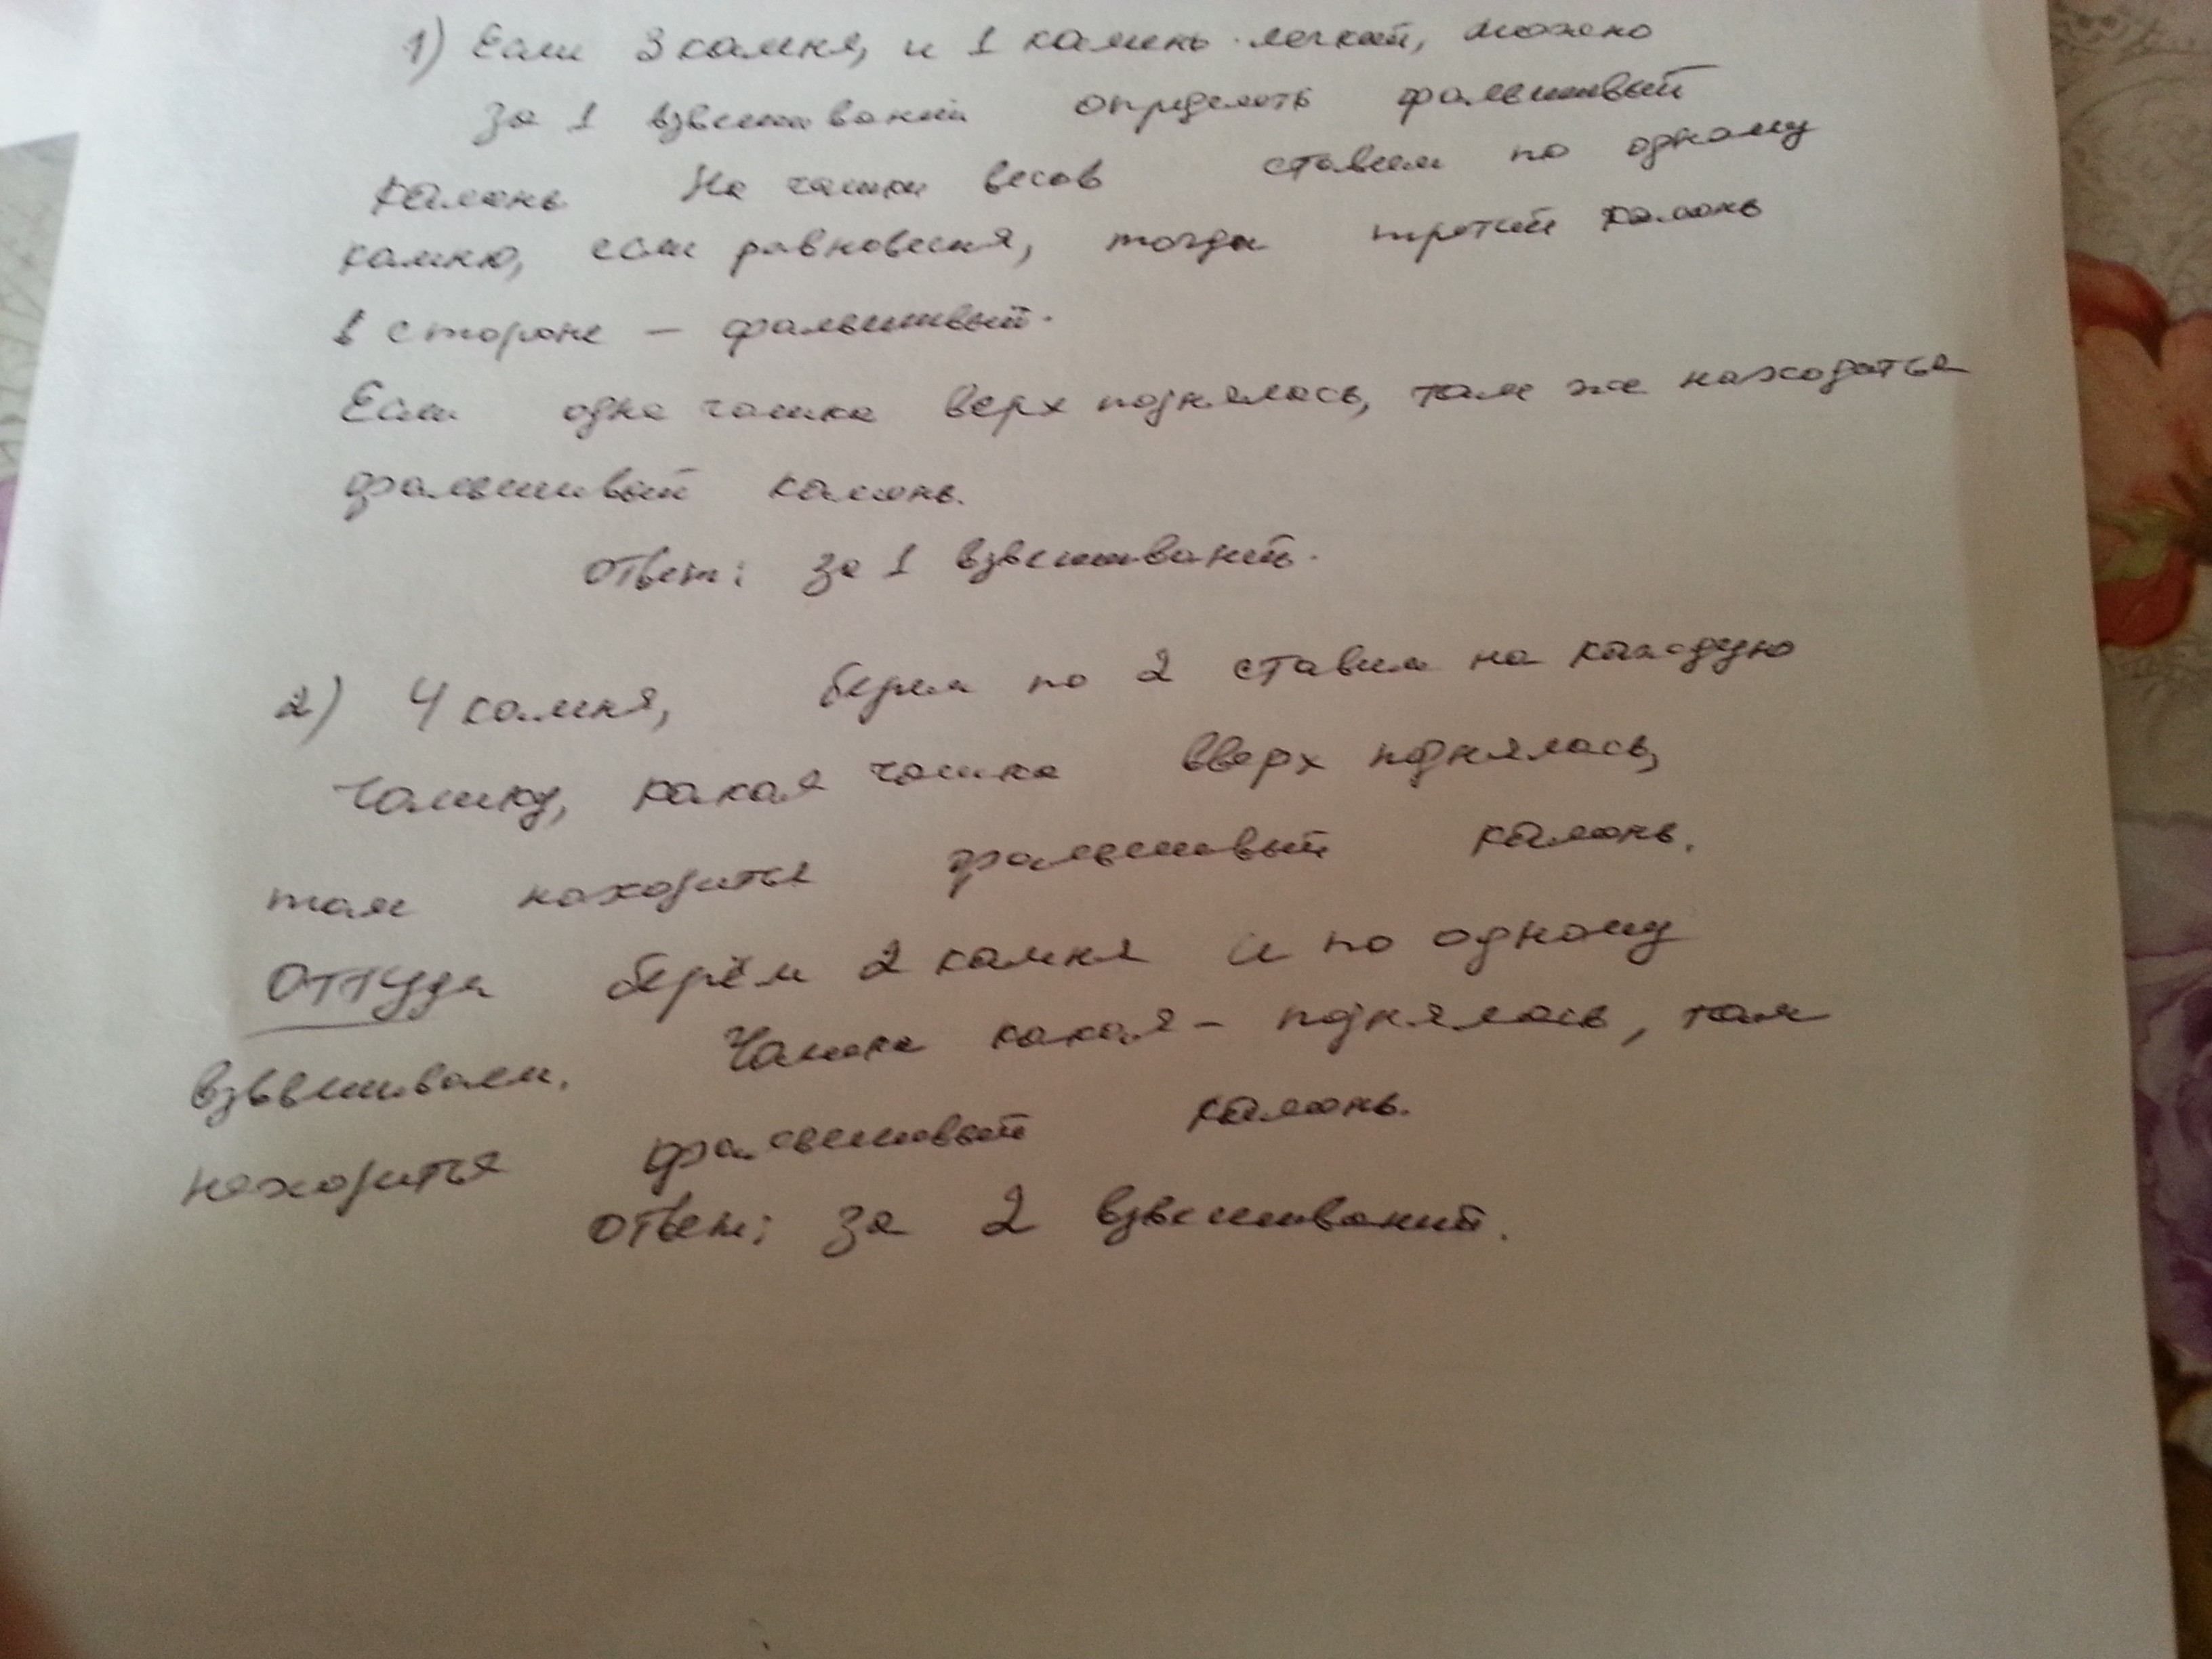 1) Если 3 камня, и 1 камень легкий, можно
за 1 взвешиваний определить фальшивый
камень На чашки весов ставим по одному
камню, если равновесия, тогда третий камень
в стороне — фальшивый.
Если одна чашка верх поднялась, там же находиться
фальшивый камень.
Ответ: за 1 взвешиваний.
2) 4 камня, берем по 2 ставим на каждую
чашку, какая чашка вверх поднялась,
там находиться фальшивый камень.
Оттуда берём 2 камня и по одному
взввешиваем. Чашка какая - поднялась, там
находиться фальшивый камень.
Ответ: за 2 взвешиваний.